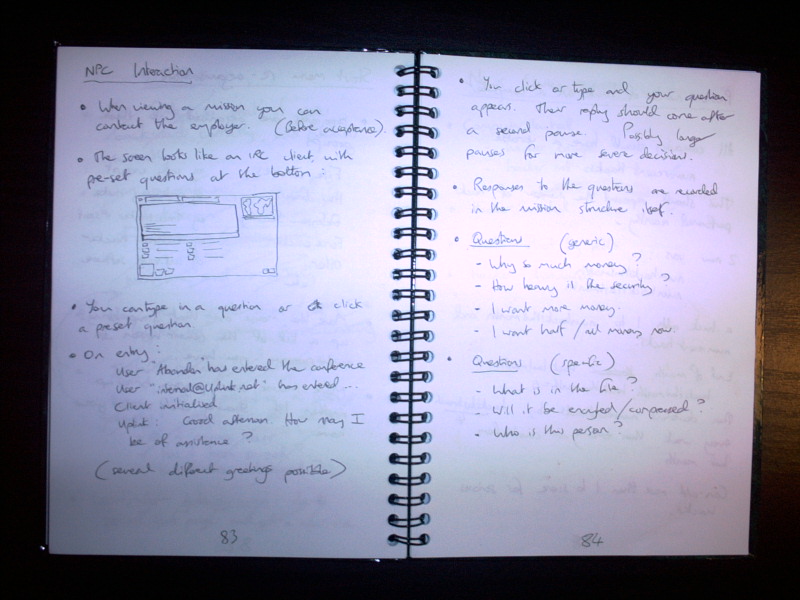 NPC Interaction
• When viewing a mission you can
contact the employer. (Before acceptance).
• The screen looks like an IRC client, with
pre-set questions at the bottom :
• You can type in a question or click
a preset question.
• On entry :
User "Abandon" has entered the conference
User "internal@Uplink.net" has entered ...
Client initialised
Uplink : Good afternoon. How may I
be of assistance ?
(several different greetings possible)
83
• You click or type and your question
appears. Their reply should come after
a second pause. Possibly longer
pauses for more severe decisions.
• Responses to the questions are recorded
in the mission structure itself.
• Questions (generic)
- Why so much money ?
- How heavy is the security ?
- I want more money.
- I want half / all money now
• Questions (specific)
- What is in the file ?
- Will it be encrypted/compressed ?
- Who is this person ?
84